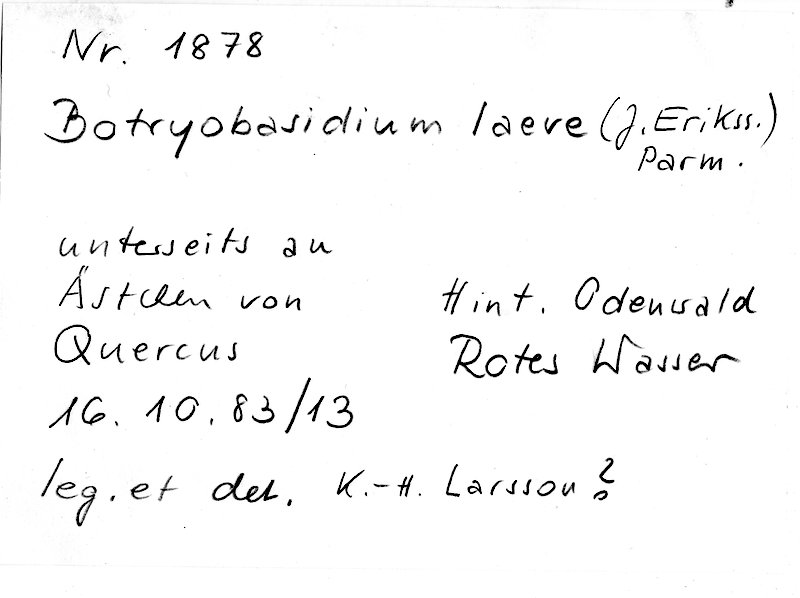 Nr. 1878
Botryobasidium laeve (J. Erikss.)
Parm.
unterseits an
Ästchen von
Quercus
Hint. Odenwald
Rotes Wasser
16. 10. 83/13
leg. et det. K.-H. Larsson?